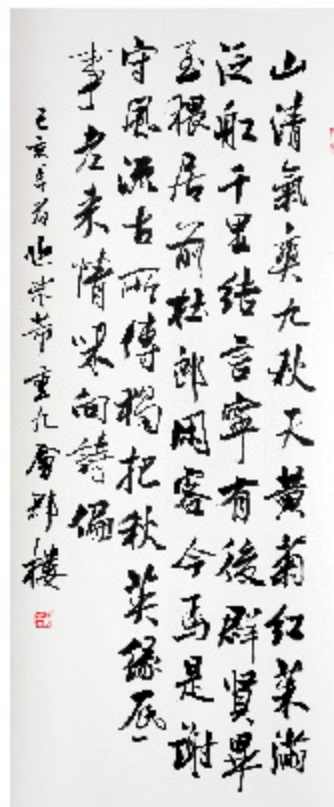 山清氣爽九秋天黃菊紅茱滿
泛船千里結言寧有後群賢畢
至猥居前杜郎閑客今焉是謝
守風流古所傳獨把秋英緣底
事老來情味向詩偏
己亥年臨米芾重九會郡樓